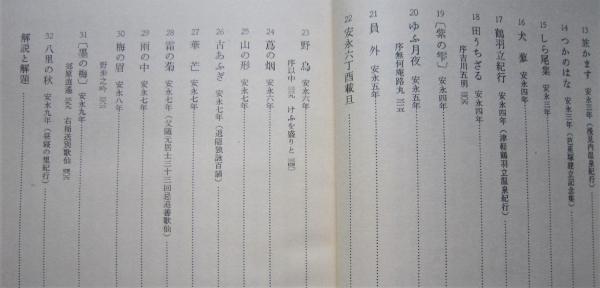 13 笠かます 安永三年(浅見内温泉紀行)
14 つかのはな 安永三年(芭蕉塚建立記念集)
15 しら尾集 安永三年
16 犬蓼 安永四年
17 鶴羽立紀行 安永四年(津軽鶴羽立温泉紀行)
18 田うちざる 安永四年
序吉川五男
19 〔紫の雫〕 安永四年
20 ゆふ月夜 安永五年
序無何庵路丸
21 員外 安永五年
22 安永六丁酉載旦
23 野鳥 安永六年
序以中 けふを盛りと
24 蔦の烟 安永六年
25 山の形 安永七年
26 古あふぎ 安永七年(追隠独詠百韻)
27 華芒 安永七年
28 霜の菊 安永七年(父随元居士三十三回忌追善歌仙)
29 雨の中 安永七年
30 梅の眉 安永八年
野歩之吟
31 〔墨の梅〕 安永九年
郊原逍遥 右稲送別歌仙
32 八里の秋 安永九年(昼寝の里紀行)
解説と解題